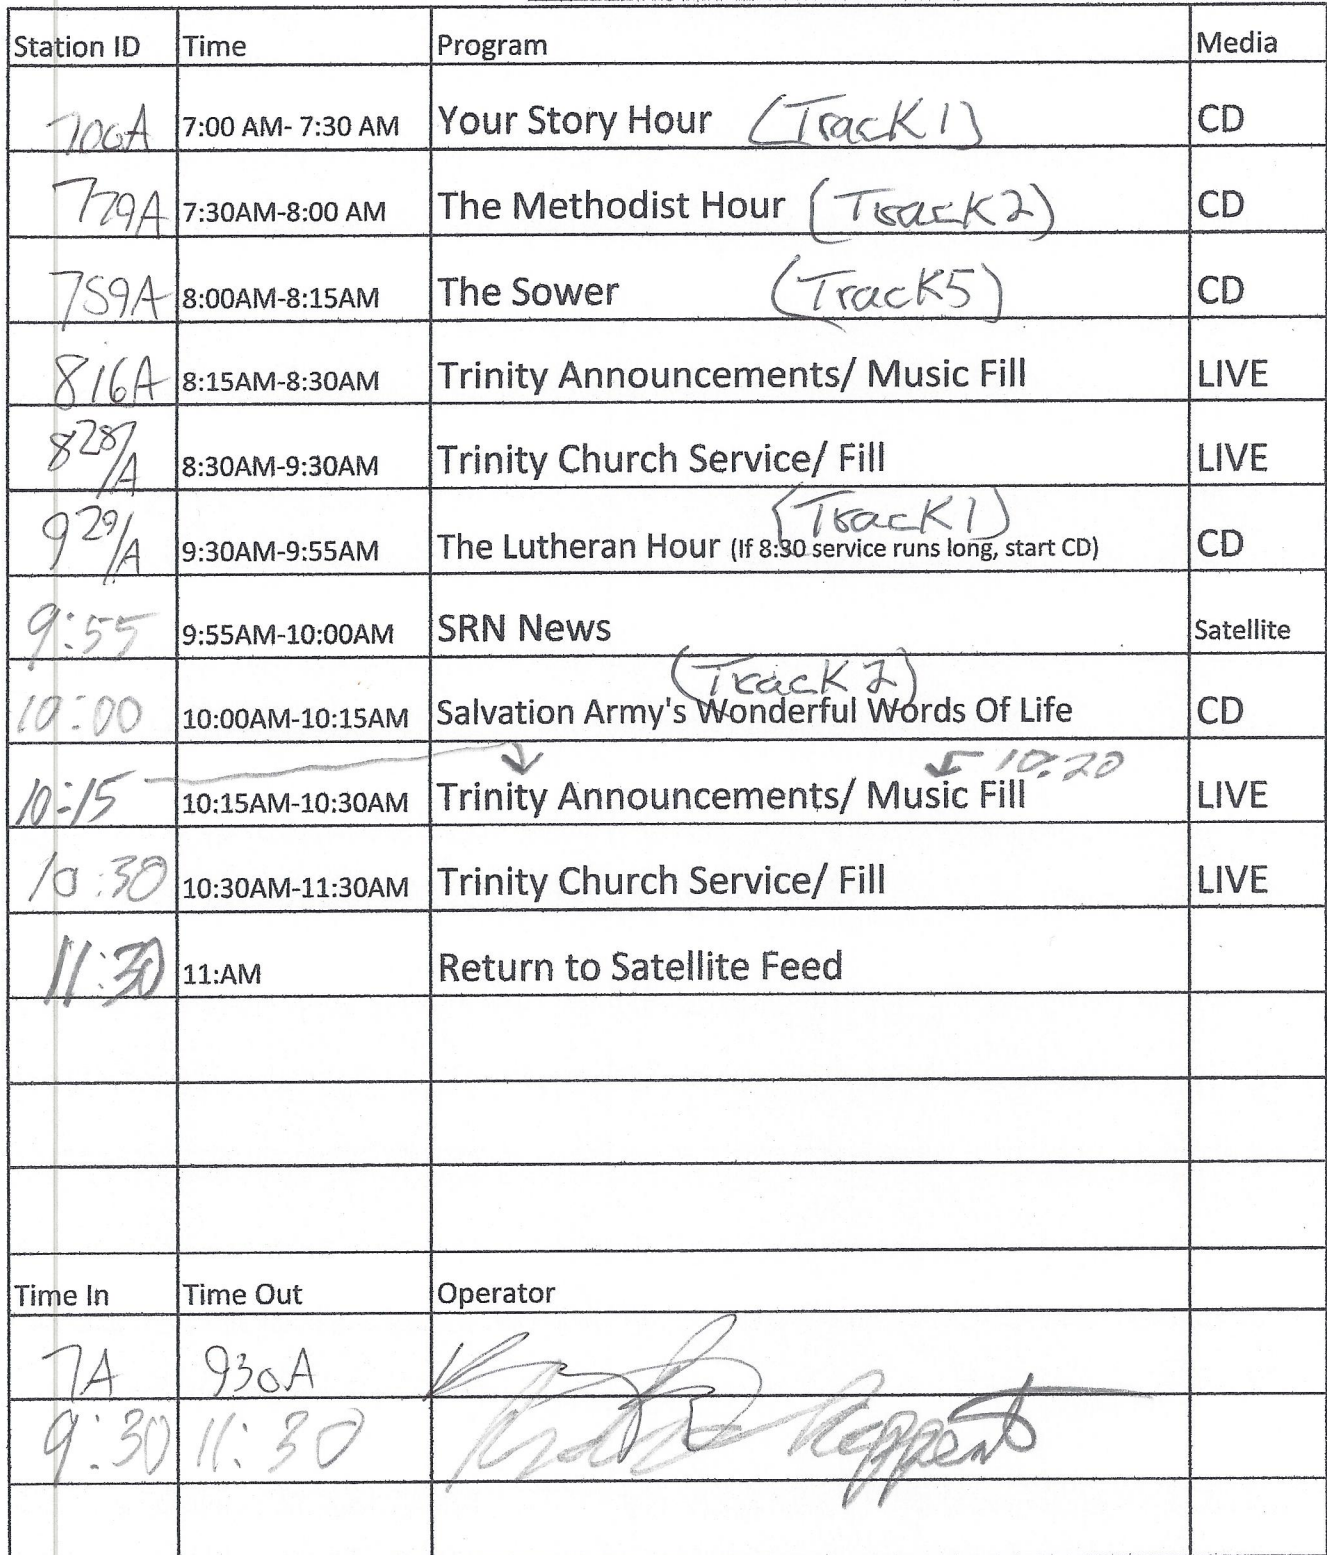 Station ID Time Program Media
700A 7:00 AM- 7:30 AM Your Story Hour (Track 1) CD
729A 7:30AM-8:00 AM The Methodist Hour (Track 2) CD
759A 8:00AM-8:15AM The Sower (Track 5) CD
816A 8:15AM-8:30AM Trinity Announcements/ Music Fill LIVE
828/A 8:30AM-9:30AM Trinity Church Service/ Fill LIVE
(Track 1)
929/A 9:30AM-9:55AM The Lutheran Hour (If 8:30 service runs long, start CD) CD
9:55 9:55AM-10:00AM SRN News Satellite
(Track 2)
10:00 10:00AM-10:15AM Salvation Army's Wonderful Words Of Life CD
10:20
10:15 10:15AM-10:30AM Trinity Announcements/ Music Fill LIVE
10:30 10:30AM-11:30AM Trinity Church Service/ Fill LIVE
11:30 11:AM Return to Satellite Feed
Time In Time Out Operator
7A 930A
9:30 11:30